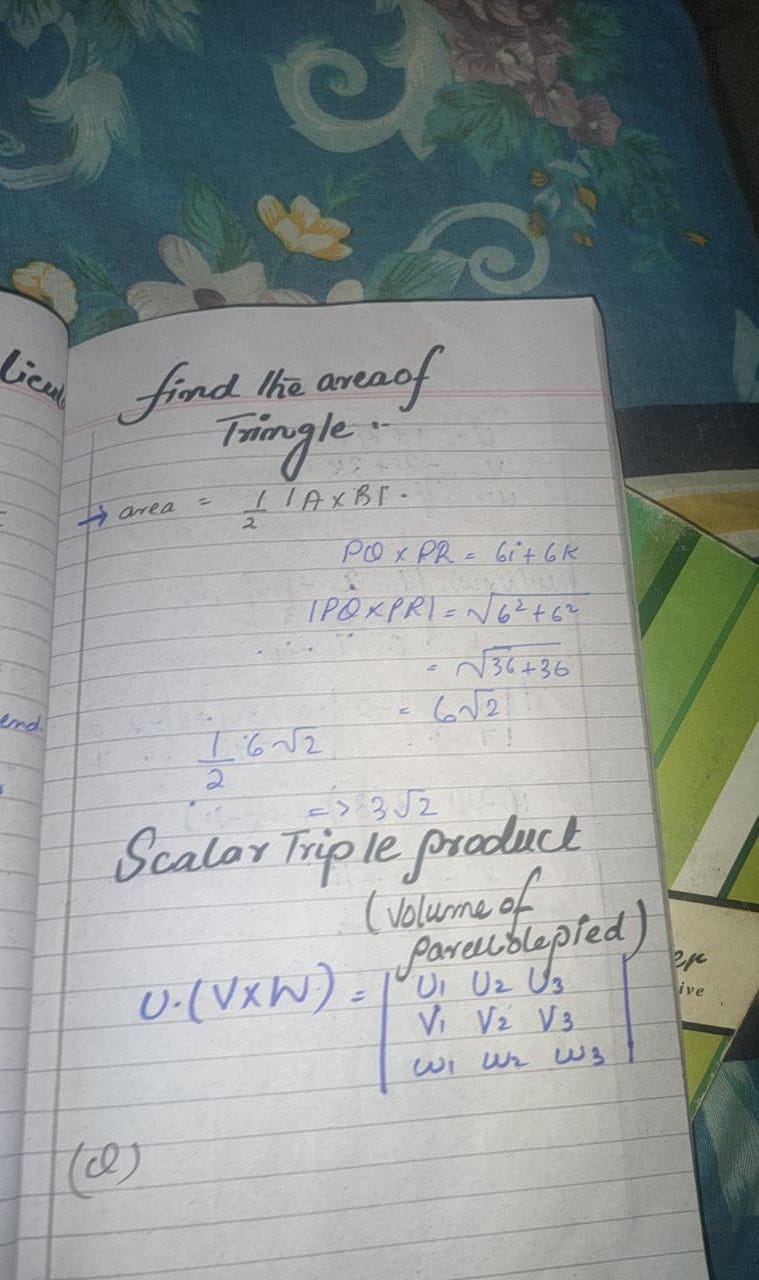 find the area of
Tringle :-
→ area = 1/2 |A×B|.
PQ × PR = 6i + 6k
|PQ × PR| = √6² + 6²
= √36 + 36
= 6√2
1/2 6√2
=> 3√2
Scalar Triple product
(Volume of
parellolepied)
U.(V×W) = | U1 U2 U3
V1 V2 V3
W1 W2 W3 |
(Q)
end
ive